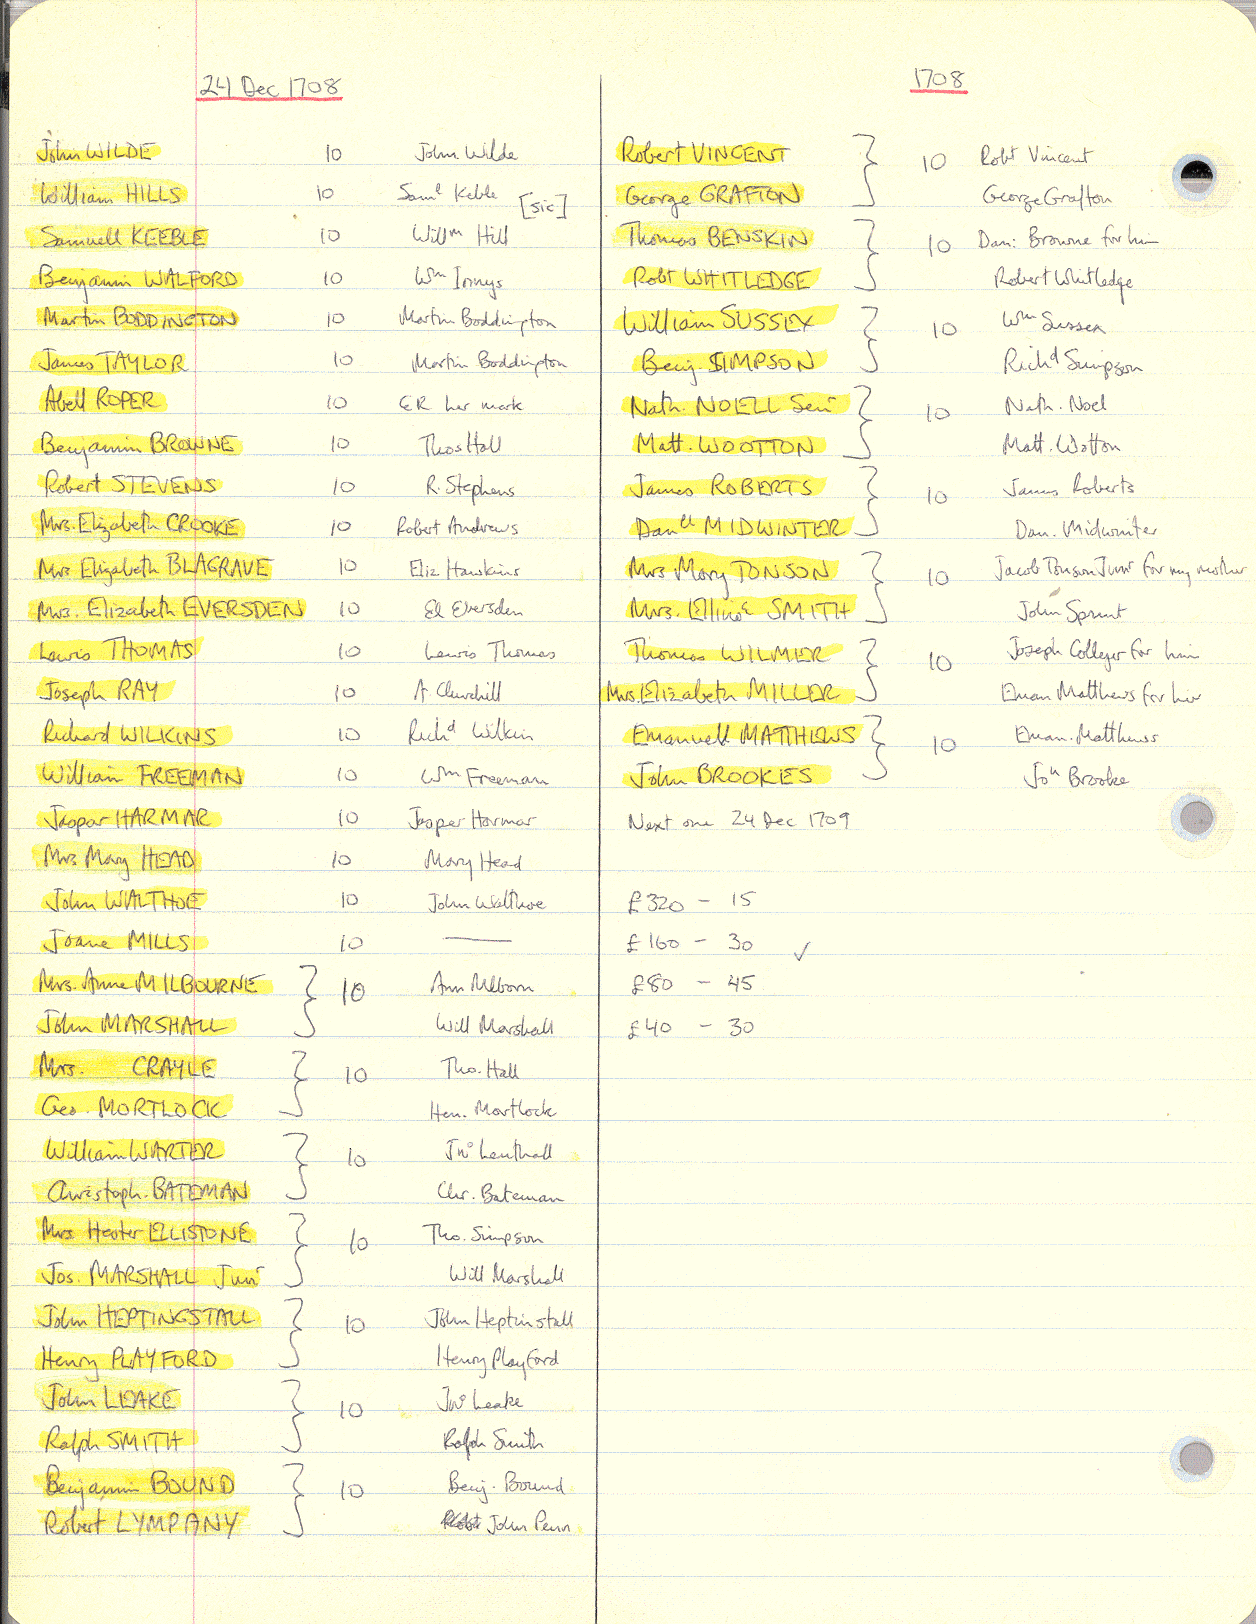 24 Dec 1708
John WILDE 10 John Wilde
William HILLS 10 Saml Keble [sic]
Samuell KEEBLE 10 Willm Hill
Benjamin WALFORD 10 Wm Innys
Martin BODDINGTON 10 Martin Boddington
James TAYLOR 10 Martin Boddington
Abell ROPER 10 ER her mark
Benjamin BROWNE 10 Thos Hall
Robert STEVENS 10 R. Stephens
Mrs. Elizabeth CROOKE 10 Robert Andrews
Mrs Elizabeth BLAGRAVE 10 Eliz Hawkins
Mrs. Elizabeth EVERSDEN 10 El Eversden
Lewis THOMAS 10 Lewis Thomas
Joseph RAY 10 A. Churchill
Richard WILKINS 10 Richd Wilkin
William FREEMAN 10 Wm Freeman
Jaspar HARMAR 10 Jasper Harmar
Mrs Mary HEAD 10 Mary Head
John WALTHOE 10 John Walthoe
Joane MILLS 10 ——
Mrs. Anne MILBOURNE } 10 Ann Milborn
John MARSHALL Will Marshall
Mrs. CRAYLE } 10 Tho. Hall
Geo. MORTLOCK Hen. Mortlock
William WARTER } 10 Jno Leuthall
Christoph. BATEMAN Chr. Bateman
Mrs Hester ELLISTONE } 10 Tho. Simpson
Jos. MARSHALL Junr Will Marshall
John HEPTINGSTALL } 10 John Heptinstall
Henry PLAYFORD Henry Playford
John LEAKE } 10 Jno Leake
Ralph SMITH Ralph Smith
Benjamin BOUND } 10 Benj. Bound
Robert LYMPANY John Penn
1708
Robert VINCENT } 10 Robt Vincent
George GRAFTON George Grafton
Thomas BENSKIN } 10 Dan: Browne for him
Robt WHITLEDGE Robert Whitledge
William SUSSEX } 10 Wm Sussex
Benj. SIMPSON Richd Simpson
Nath. NOELL Senr } 10 Nath. Noel
Matt. WOOTTON Matt. Wotton
James ROBERTS } 10 James Roberts
Danll MIDWINTER Dan. Midwinter
Mrs Mary TONSON } 10 Jacob Tonson Junr for my mother
Mrs. Ellinr SMITH John Sprint
Thomas WILMER } 10 Joseph Collyer for him
Mrs. Elizabeth MILLER Eman Matthews for her
Emanuell MATTHEWS } 10 Eman. Matthews
John BROOKES Jon Brooke
Next one 24 Dec 1709
£320 - 15
£160 - 30 ✓
£80 - 45
£40 - 30